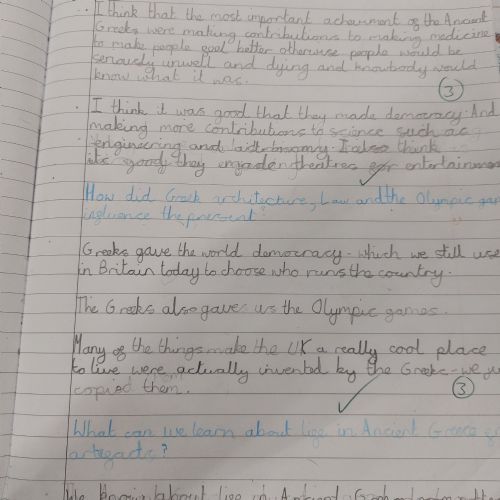 I think that the most important acheivment of the Ancient
Greeks were making contributions to making medicine
to make people feel better otherwise people would be
seriously unwell and dying and knowbody would
know what it was.
3
I think it was good that they made demoracy. And
making more contributions to science such as
engineering and I also think
its good they made theatres for entertainment
How did Greek architecture, Law and the Olympic gam
influence the present?
Greeks gave the world democracy. which we still use
in Britain today to choose who runs the country.
The Greeks also gave us the Olympic games.
Many of the things make the UK a really cool place
to live were actually invented by the Greeks - we ju
copied them.
3
What can we learn about life in Ancient Greece fr
artefacts?
We know about life in